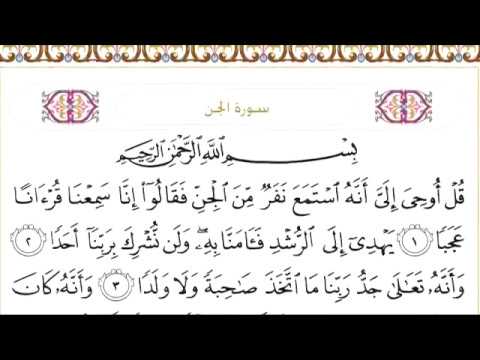 سورة الجن
بِسْمِ ٱللَّهِ ٱلرَّحْمَٰنِ ٱلرَّحِيمِ
قُلْ أُوحِىَ إِلَىَّ أَنَّهُ ٱسْتَمَعَ نَفَرٌ مِّنَ ٱلْجِنِّ فَقَالُوٓا۟ إِنَّا سَمِعْنَا قُرْءَانًا
عَجَبًا ١ يَهْدِىٓ إِلَى ٱلرُّشْدِ فَـَٔامَنَّا بِهِۦ ۖ وَلَن نُّشْرِكَ بِرَبِّنَآ أَحَدًا ٢
وَأَنَّهُۥ تَعَٰلَىٰ جَدُّ رَبِّنَا مَا ٱتَّخَذَ صَٰحِبَةً وَلَا وَلَدًا ٣ وَأَنَّهُۥ كَانَ